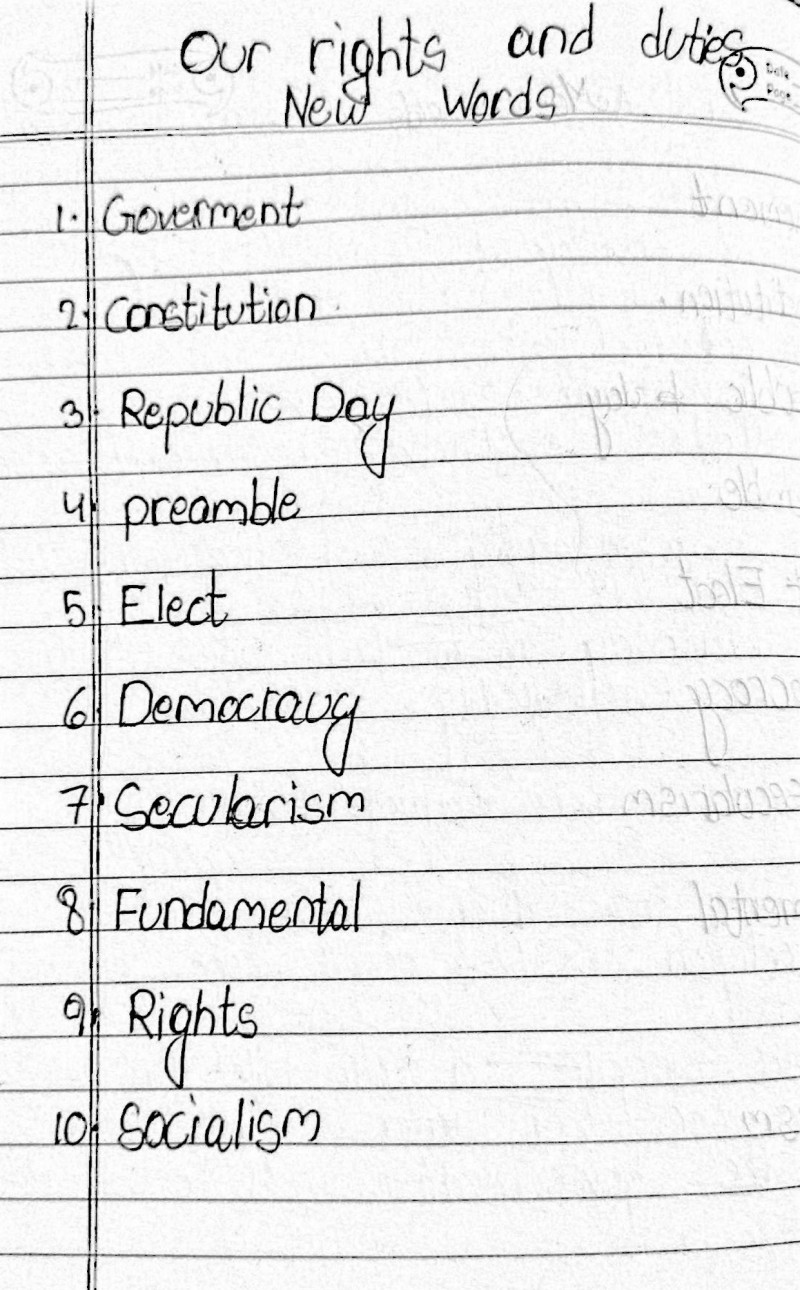 Our rights and duties
Date
Page
New Words
1. Goverment
2. Constitution
3. Republic Day
4. preamble
5. Elect
6. Democracy
7. Secularism
8. Fundamental
9. Rights
10. Socialism